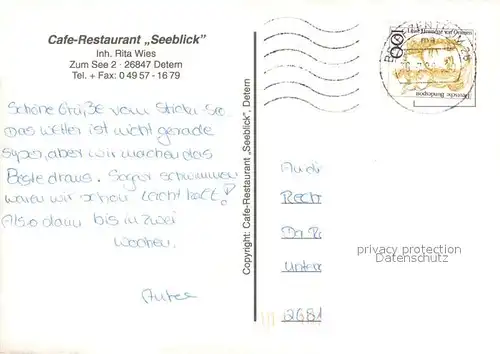 Cafe-Restaurant „Seeblick"
Inh. Rita Wies
Zum See 2 · 26847 Detern
Tel. + Fax: 0 49 57 - 16 79
Schöne Grüße vom See.
Das Wetter ist nicht gerade
super, aber wir machen das
Beste draus. Sogar schwimmen
waren wir schon (acht kalt!)
Also dann bis in zwei
Wochen.
Copyright: Cafe-Restaurant „Seeblick", Detern
100
Deutsche Bundespost
Rech
Da
Unter
2681
privacy protection
Datenschutz